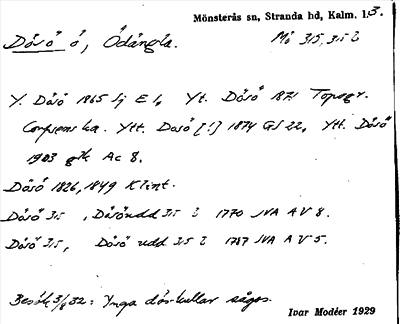 Mönsterås sn, Stranda hd, Kalm. l. 3.
Dåsö ö, Ödängla. Mö 315, 315 l
Y. Dåsö 1865 sj E 1, Yt. Dåsö 1871 Topogr.
Corpsens ka. Ytt. Dasö [!] 1874 GS 22, Ytt. Dåsö
1903 gtk Ac 8.
Dåsö 1826, 1849 Klint.
Dåsö 315, Dåsöudd 315 l 1770 JVA A V 8.
Dåsö 315, Dåsö udd 315 l 1787 JVA A V 5.
Besök 3/8 32: Ynga dåskullar säges.
Ivar Modéer 1929